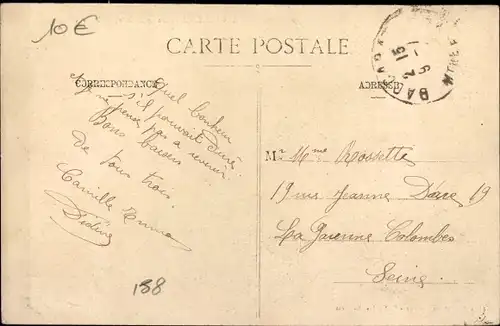 10€
CARTE POSTALE
CORRESPONDANCE
ADRESSE
Quel bonheur
s'il pouvait durer
ne pense pas a revenir
Bons baisers
de tous trois
Camille Emma
Mr Mme Rossette
19 rue Jeanne Darc 19
La Garenne Colombes
Seine
158